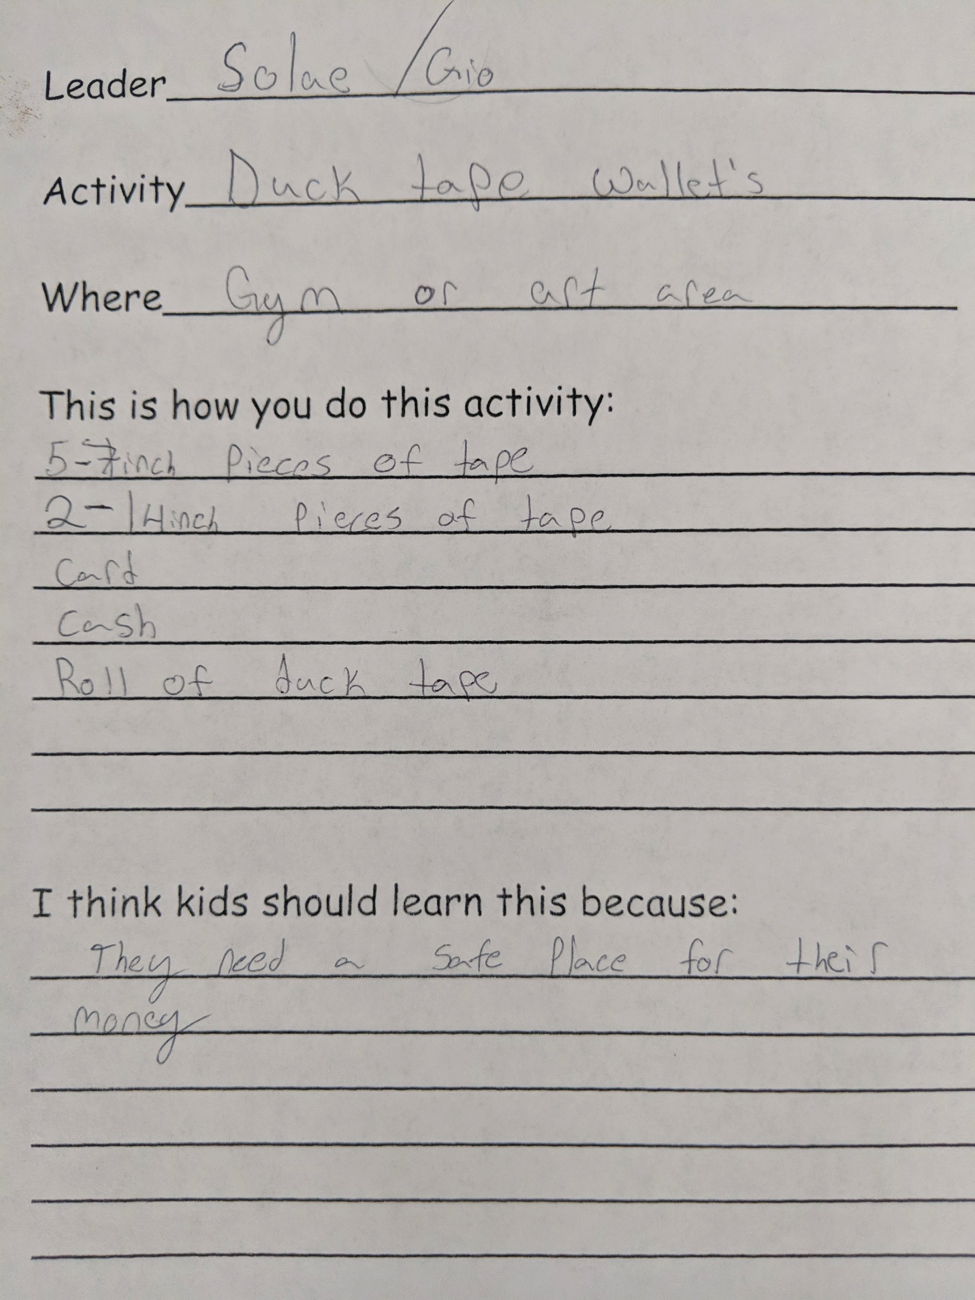 Leader Solae / Gio
Activity Duck tape Wallet's
Where Gym or art area
This is how you do this activity:
5-7inch Pieces of tape
2-14inch Pieces of tape
Card
Cash
Roll of duck tape
I think kids should learn this because:
They need a safe Place for their
money